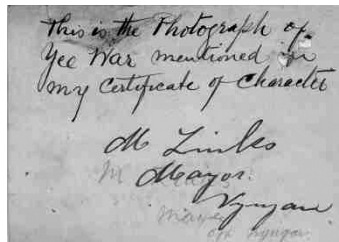 This is the Photograph of
Yee War mentioned in
my Certificate of Character
M Links
Mayor
Nyngan
Mayor
of Nyngan